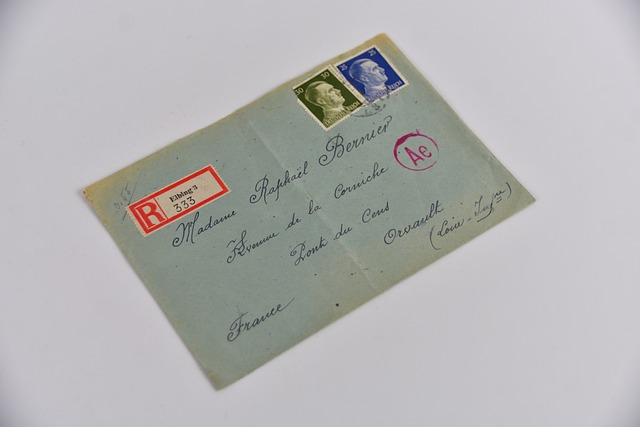 30
25
DEUTSCHES REICH
R
Elbing 3
333
Ae
Madame Raphaël Bernier
Avenue de la Corniche
Pont du Cens
Orvault
(Loire-Infre)
France